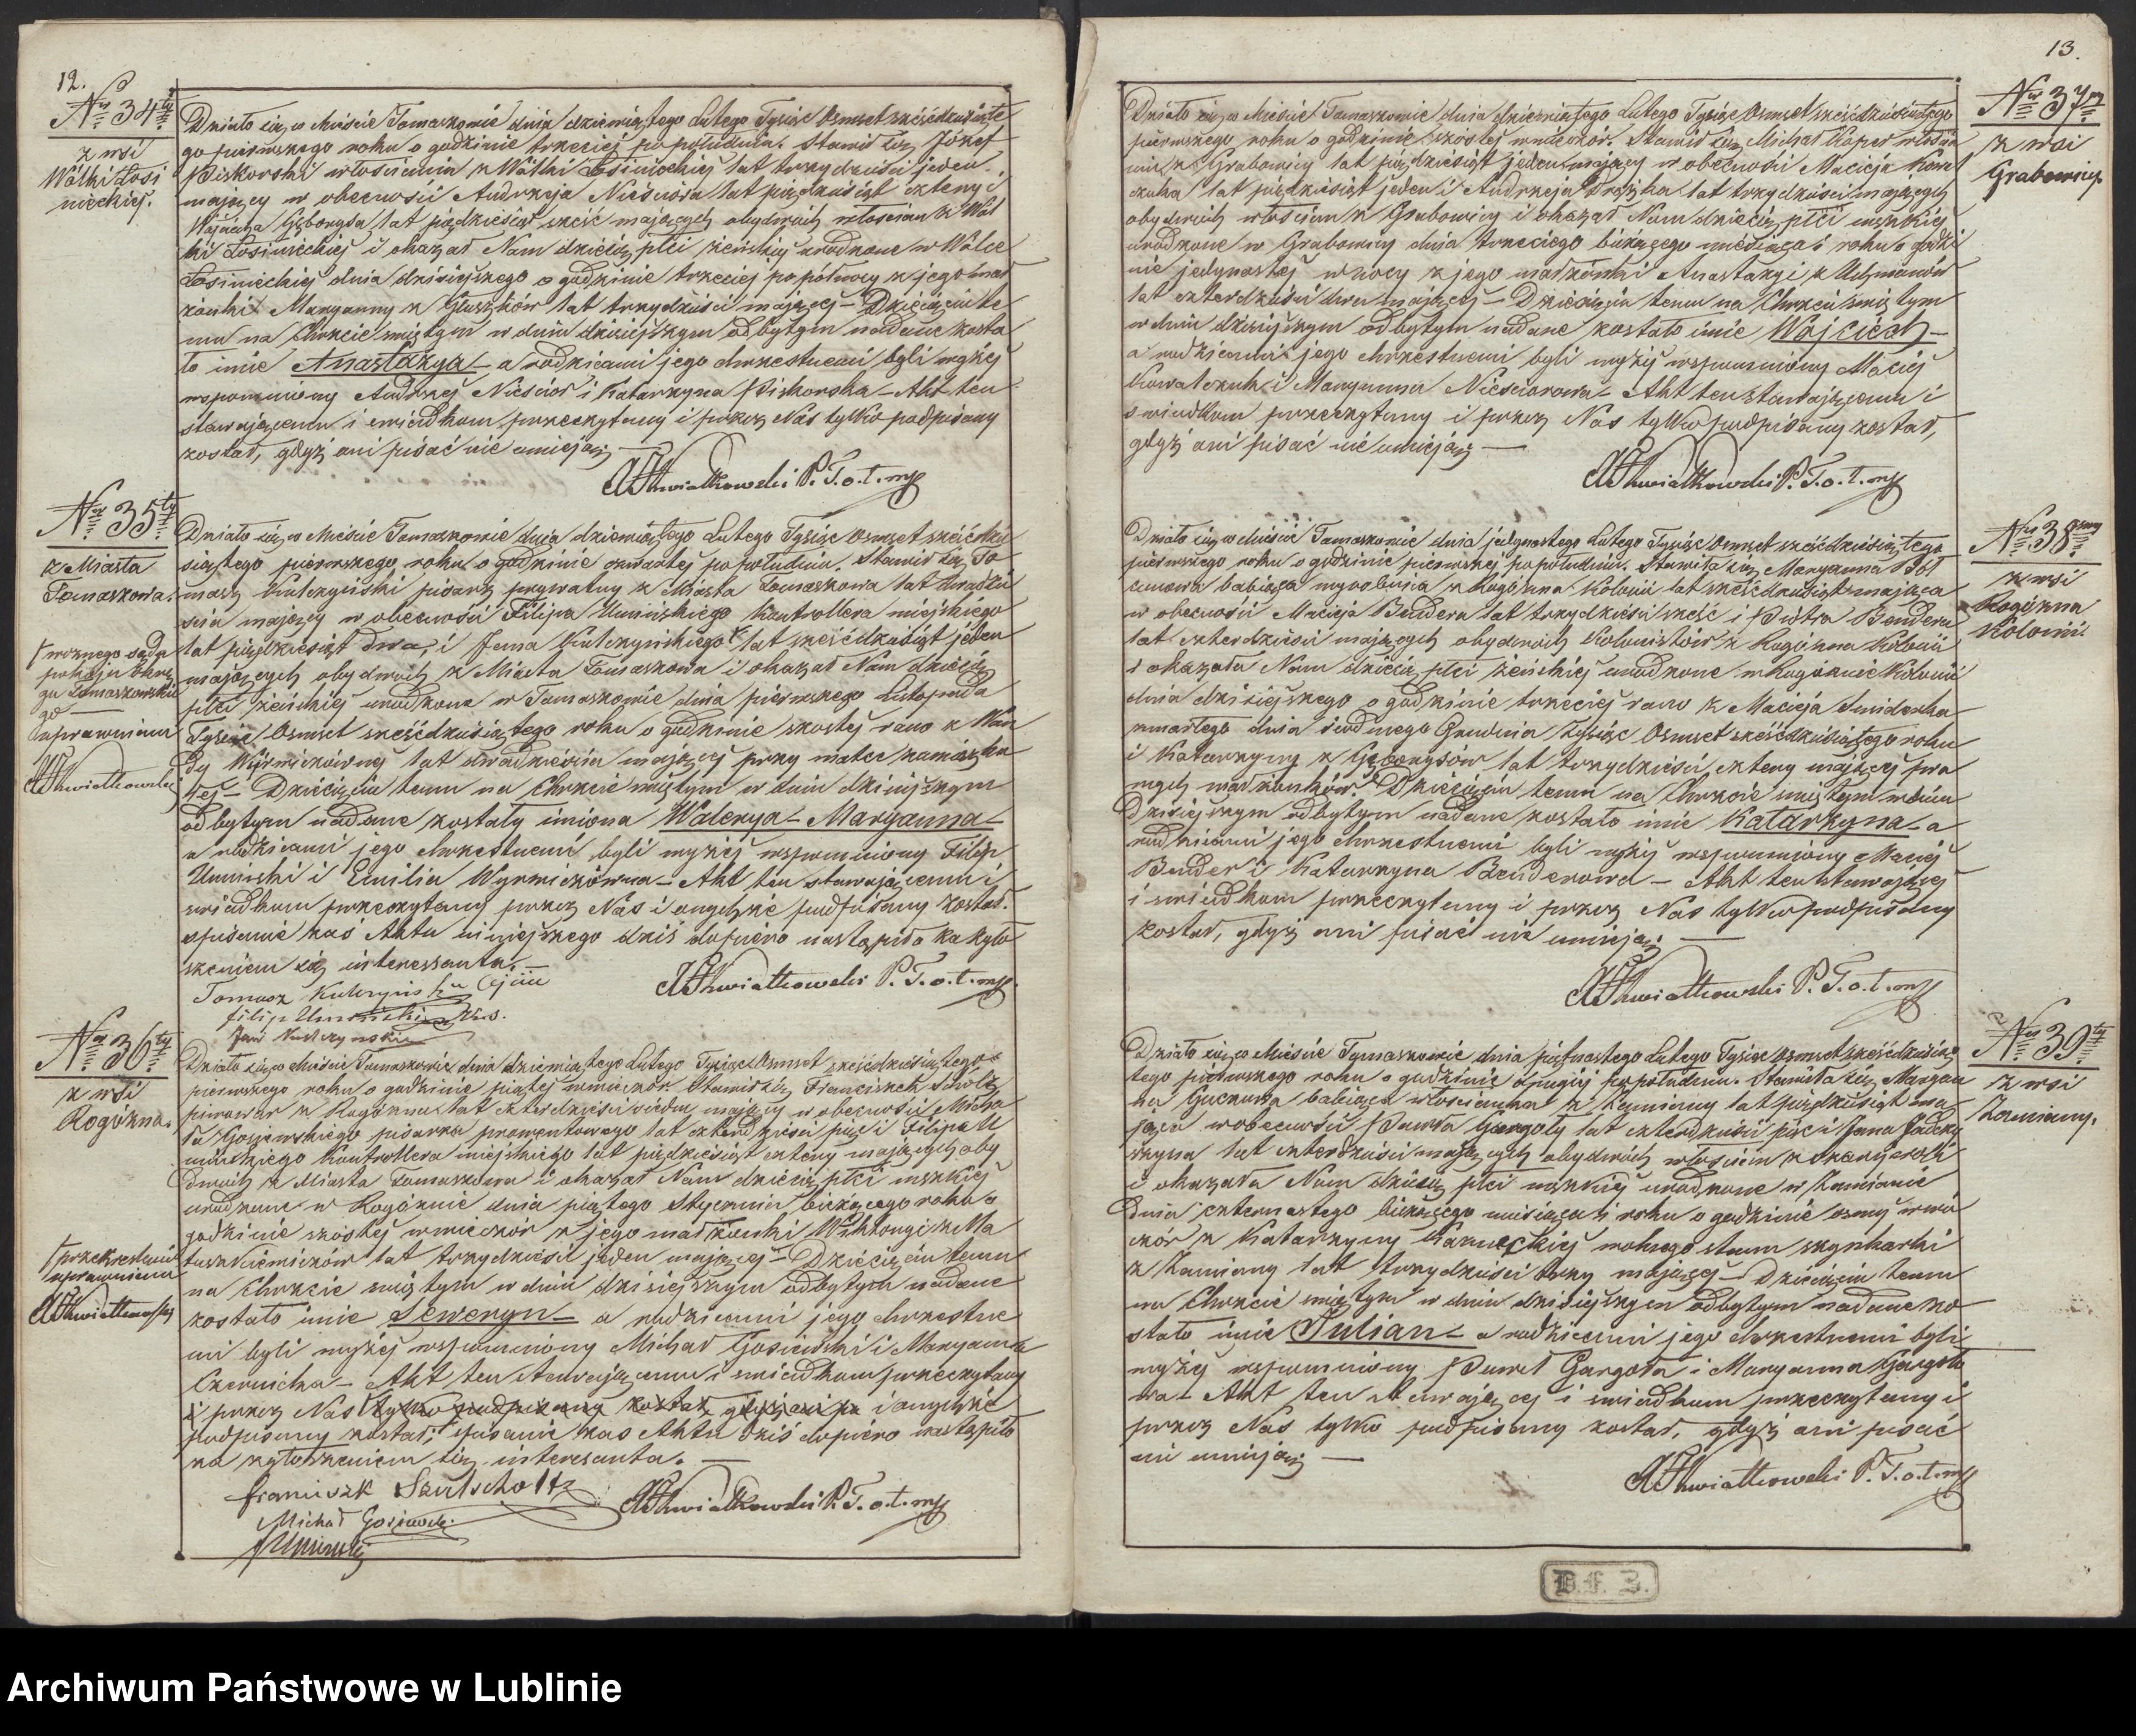 12.
Nr 34ty
z wsi
Wólki Łosi
nieckiéj.
Działo się w Mieście Tomaszowie dnia dziewiątego Lutego Tysiąc Osmset sześćdziesiąte
go pierwszego roku o godzinie trzeciej po południu. Stawił się Józef
Piskorski włościanin z Wólki Łosinieckiej lat trzydzieści jeden
mający w obecności Andrzeja Nieścióra lat pięćdziesiąt cztery i
Wojciecha lat pięćdziesiąt sześć mających obydwóch włościan z Wól
ki Łosinieckiej i okazał Nam dziecię płci żeńskiej urodzone w Wólce
Łosinieckiej dnia dzisiejszego o godzinie trzeciej po północy z jego mał
żonki Maryanny z Głuszków lat trzydzieści mającej – Dziecięciu te
mu na Chrzcie świętym w dniu dzisiejszym odbytym nadane zosta
ło imie Anastazya – a rodzicami jego chrzestnemi byli wyżej
wspomniony Andrzej Nieściór i Katarzyna Piskorska – Akt ten
stawającemu i świadkom przeczytany i przez Nas tylko podpisany
został, gdyż oni pisać nie umieją. —
Kwiatkowski P. T. o. t. mp
Nr 35ty
z Miasta
Tomaszowa.
Działo się w Mieście Tomaszowie dnia dziewiątego Lutego Tysiąc Osmset sześćdzie
siątego pierwszego roku o godzinie czwartej po południu. Stawił się To
masz Kulczyński pisarz prywatny z Miasta Tomaszowa lat dwadzie
ścia mający w obecności Filipa Umińskiego Kontrollera miejskiego
lat pięćdziesiąt dwa, i Jana Kulczyńskiego lat sześćdziesiąt jeden
mających obydwóch z Miasta Tomaszowa i okazał Nam dziecię
płci żeńskiej urodzone w Tomaszowie dnia pierwszego Listopada
Tysiąc Osmset sześćdziesiątego roku o godzinie szóstej rano z Wan
dy lat dwadzieścia mającej przy matce zamieszka
łej – Dziecięciu temu na Chrzcie świętym w dniu dzisiejszym
odbytym nadane zostały imiona Walerya – Maryanna –
a rodzicami jego chrzestnemi byli wyżej wspomniony Filip
Umiński i Emilia – Akt ten stawającemu i
świadkom przeczytany przez Nas i onychże podpisany został.
spisanie zaś Aktu niniejszego dziś dopiero nastąpiło za zgło
szeniem się interessanta. —
Kwiatkowski P. T. o. t. mp
Tomasz Kulczyński
Filip Umiński
Jan Kulczynski
woznego sądu
pokoju Okrę
gu Tomaszowskie
go —
zaprawniam
Kwiatkowski
Nr 36ty
z wsi
Rogóźna.
Działo się w Mieście Tomaszowie dnia dziewiątego Lutego Tysiąc Osmset sześćdziesiątego
pierwszego roku o godzinie piątej wieczór. Stawił się Franciszek
piwowar z Rogóźna lat czterdzieści siedm mający w obecności Micha
ła Gosiewskiego pisarza prowentowego lat czterdzieści pięć i Filipa U
mińskiego Kontrollera miejskiego lat pięćdziesiąt cztery mających oby
dwóch z Miasta Tomaszowa i okazał Nam dziecię płci męzkiej
urodzone w Rogóźnie dnia piątego Stycznia bieżącego roku o
godzinie szóstej wieczór z jego małżonki Wiktoryi z Ma
lat trzydzieści jeden mającej – Dziecięciu temu
na Chrzcie świętym w dniu dzisiejszym odbytym nadane
zostało imie Seweryn – a rodzicami jego chrzestne
mi byli wyżej wspomniony Michał Gosiewski i Maryanna
– Akt ten stawającemu i świadkom przeczytany
i przez Nas tylko podpisany został gdyż oni pi i onychże
podpisany został; spisanie zaś Aktu dziś dopiero nastąpiło
za zgłoszeniem się interesanta. —
przekreślenie
uprawniam
Kwiatkowski
Kwiatkowski P. T. o. t. mp
Michał Gosiewski
Umiński
13.
Nr 37my
z wsi
Grabowicy.
Działo się w Mieście Tomaszowie dnia dziewiątego Lutego Tysiąc Osmset sześćdziesiątego
pierwszego roku o godzinie szóstej wieczór. Stawił się Michał włościa
nin z Grabowicy lat pięćdziesiąt jeden mający w obecności Macieja Kowal
czuka lat pięćdziesiąt jeden i Andrzeja lat trzydzieści mających
obydwóch włościan z Grabowicy i okazał Nam dziecię płci męzkiej
urodzone w Grabowicy dnia trzeciego bieżącego miesiąca i roku o godzi
nie jedynastej w nocy z jego małżonki Anastazyi z
lat czterdzieści dwa mającej – Dziecięciu temu na Chrzcie świętym
w dniu dzisiejszym odbytym nadane zostało imie Wojciech –
a rodzicami jego chrzestnemi byli wyżej wspomniony Maciej
Kowalczuk i Maryanna Nieściorowa – Akt ten stawającemu i
świadkom przeczytany i przez Nas tylko podpisany został,
gdyż oni pisać nie umieją. —
Kwiatkowski P. T. o. t. mp
Nr 38smy
z wsi
Rogóźna
Kolonii.
Działo się w Mieście Tomaszowie dnia jedynastego Lutego Tysiąc Osmset sześćdziesiątego
pierwszego roku o godzinie pierwszej po południu. Stawiła się Maryanna
babiąca wyrobnica z Rogóźna Kolonii lat sześćdziesiąt mająca
w obecności Macieja Bendera lat trzydzieści sześć i Piotra Bendera
lat czterdzieści mających obydwóch Kolonistów z Rogóźna Kolonii
i okazała Nam dziecię płci żeńskiej urodzone w Rogóźnie Kolonii
dnia dzisiejszego o godzinie trzeciej rano z Macieja
zmarłego dnia siódmego Grudnia Tysiąc Osmset sześćdziesiątego roku
i Katarzyny z lat trzydzieści cztery mającej pra
wych małżonków. Dziecięciu temu na Chrzcie świętym w dniu
dzisiejszym odbytym nadane zostało imie Katarzyna – a
rodzicami jego chrzestnemi byli wyżej wspomniony Maciej
Bender i Katarzyna Benderowa – Akt ten stawającej
i świadkom przeczytany i przez Nas tylko podpisany
został, gdyż oni pisać nie umieją. —
Kwiatkowski P. T. o. t. mp
Nr 39ty
z wsi
Zamiany.
Działo się w Mieście Tomaszowie dnia piętnastego Lutego Tysiąc Osmset sześćdziesią
tego pierwszego roku o godzinie drugiej po południu. Stawiła się Maryan
na babiąca włościanka z Zamiany lat pięćdziesiąt ma
jąca w obecności Pawła Gargoły lat czterdzieści pięć i Jana
lat czterdzieści mających obydwóch włościan z
i okazała Nam dziecię płci męzkiej urodzone w Zamianie
dnia czternastego bieżącego miesiąca i roku o godzinie osmej wie
czór z Katarzyny wolnego stanu szynkarki
z Zamiany lat trzydzieści trzy mającej – Dziecięciu temu
na Chrzcie świętym w dniu dzisiejszym odbytym nadane zo
stało imie Julian – a rodzicami jego chrzestnemi byli
wyżej wspomniony Paweł Gargoła i Maryanna Gargoło
wa – Akt ten stawającej i świadkom przeczytany i
przez Nas tylko podpisany został, gdyż oni pisać
nie umieją. —
Kwiatkowski P. T. o. t. mp
D. F. Z.
Archiwum Państwowe w Lublinie